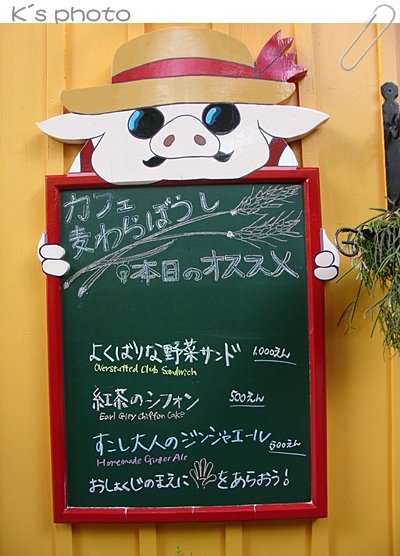 K's photo
カフェ
麦わらぼうし
本日のオススメ
よくばりな野菜サンド 1,000えん
Overstuffed Club Sandwich
紅茶のシフォン 500えん
Earl Grey Chiffon Cake
すこし大人のジンジャエール 500えん
Homemade Ginger Ale
おしょくじのまえに をあらおう!